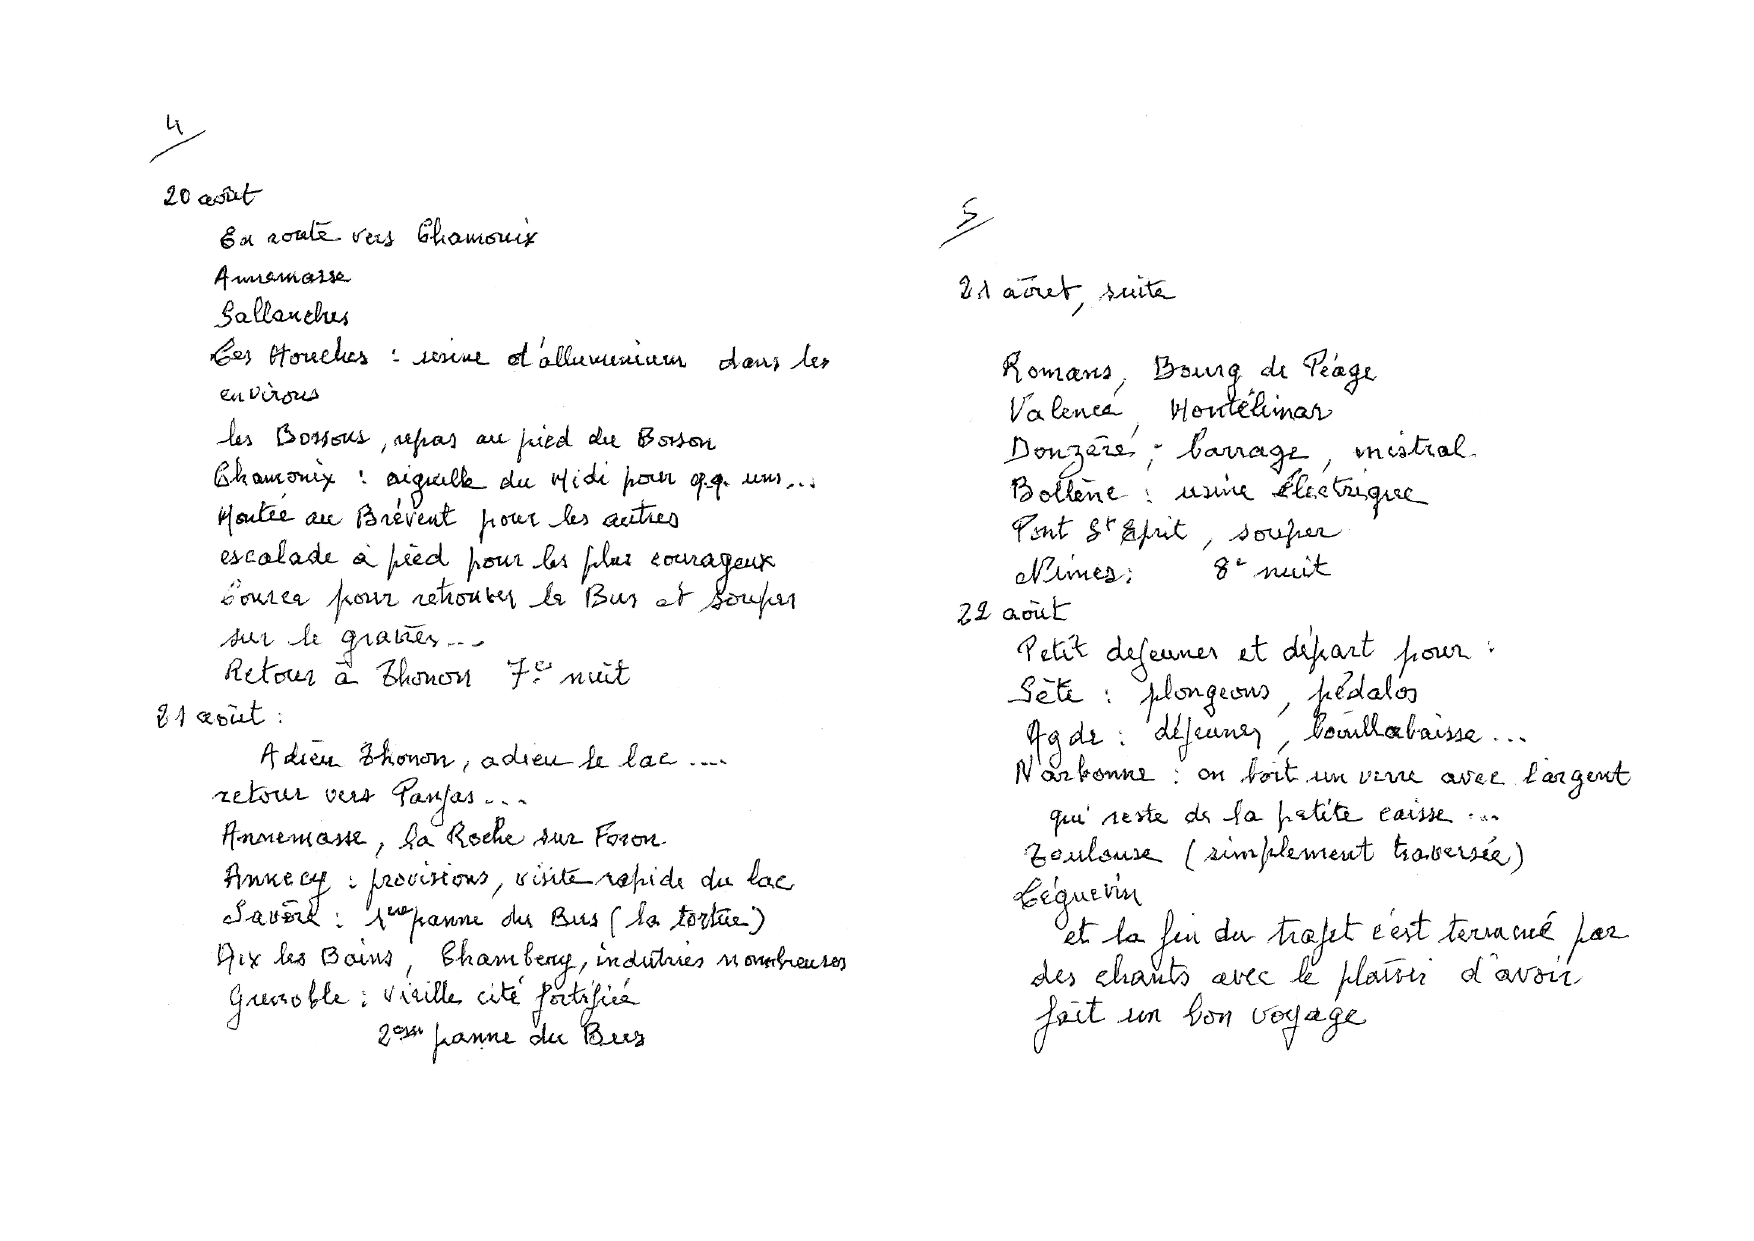 4
20 août
En route vers Chamonix
Annemasse
Sallanches
Les Houches : usine d'allumunium dans les
environs
les Bossons, repas au pied du Bosson
Chamonix : aiguille du Midi pour q.q. uns...
Montée au Brévent pour les autres
escalade à pied pour les plus courageux
Course pour retrouver le Bus et souper
sur le gravier...
Retour à Thonon 7e nuit
21 août :
Adieu Thonon, adieu le lac ....
retour vers Panjas...
Annemasse, la Roche sur Foron.
Annecy : provisions, visite rapide du lac
Savoie : 1ere panne du Bus ( la tortue )
Aix les Bains, Chambery, indutries nombreuses
Grenoble : vieille cité fortifiée
2eme panne du Bus
5
21 août, suite
Romans, Bourg de Péage
Valence, Montélimar
Donzère ; barrage, mistral.
Bollène : usine électrique
Pont St Esprit, souper
Nîmes : 8e nuit
22 août
Petit dejeuner et départ pour :
Sète : plongeons, pédalos
Agde : déjeuner, bouillabaisse...
Narbonne : on boit un verre avec l'argent
qui reste de la petite caisse ...
Toulouse ( simplement traversée )
Léguevin
et la fin du trajet c'est terminé par
des chants avec le plaisir d'avoir
fait un bon voyage